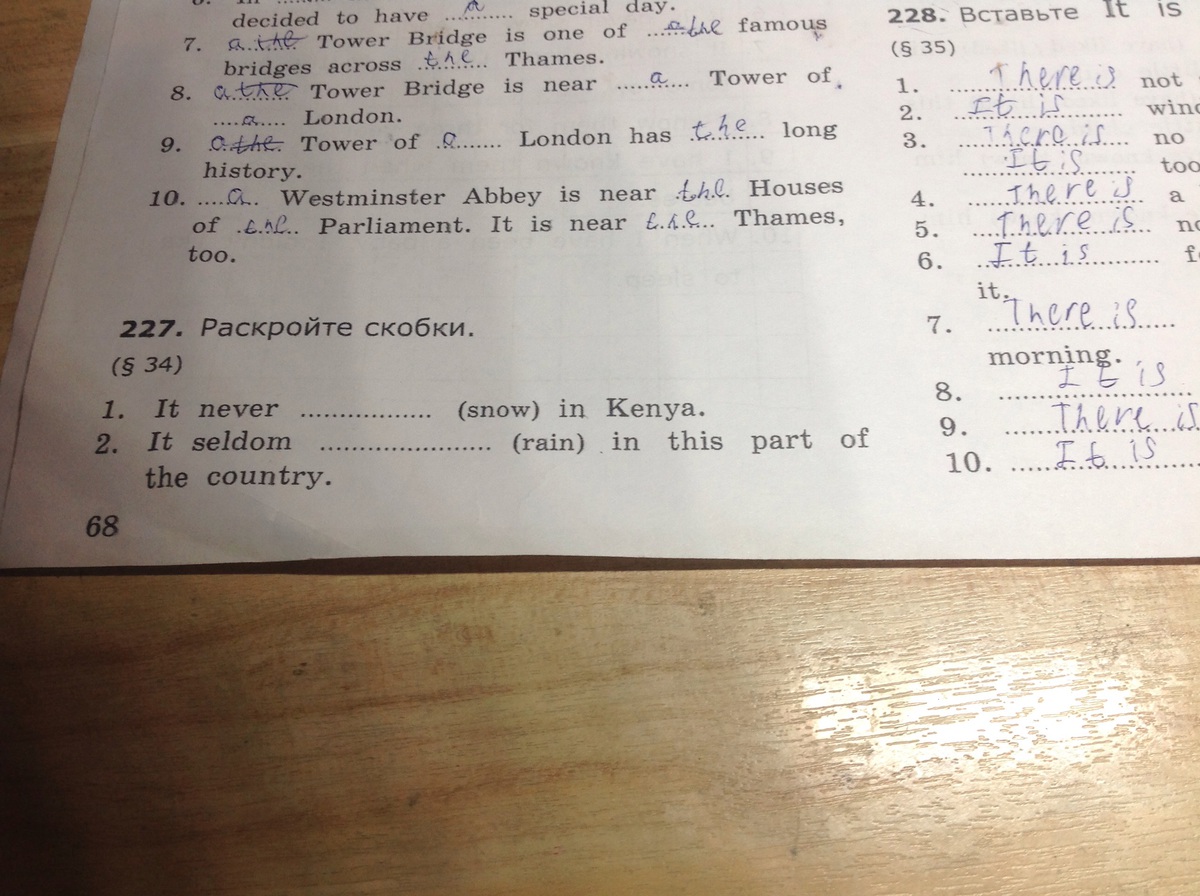 decided to have a special day.
7. a the Tower Bridge is one of a the famous
bridges across the Thames.
8. a the Tower Bridge is near a Tower of
a London.
9. a the Tower of a London has the long
history.
10. a Westminster Abbey is near the Houses
of the Parliament. It is near the Thames,
too.
227. Раскройте скобки.
(§ 34)
1. It never ............... (snow) in Kenya.
2. It seldom .................... (rain) in this part of
the country.
68
228. Вставьте It is
(§ 35)
1. There is not
2. It is
3. There is no
It is too
4. There is a
5. There is
6. It is
it.
7. There is
morning.
8. It is
9. There is
10. It is